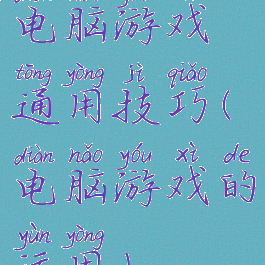 电脑游戏
tōng yòng jì qiǎo
通用技巧(
diàn nǎo yóu xì de
电脑游戏的
yùn yòng
运用)